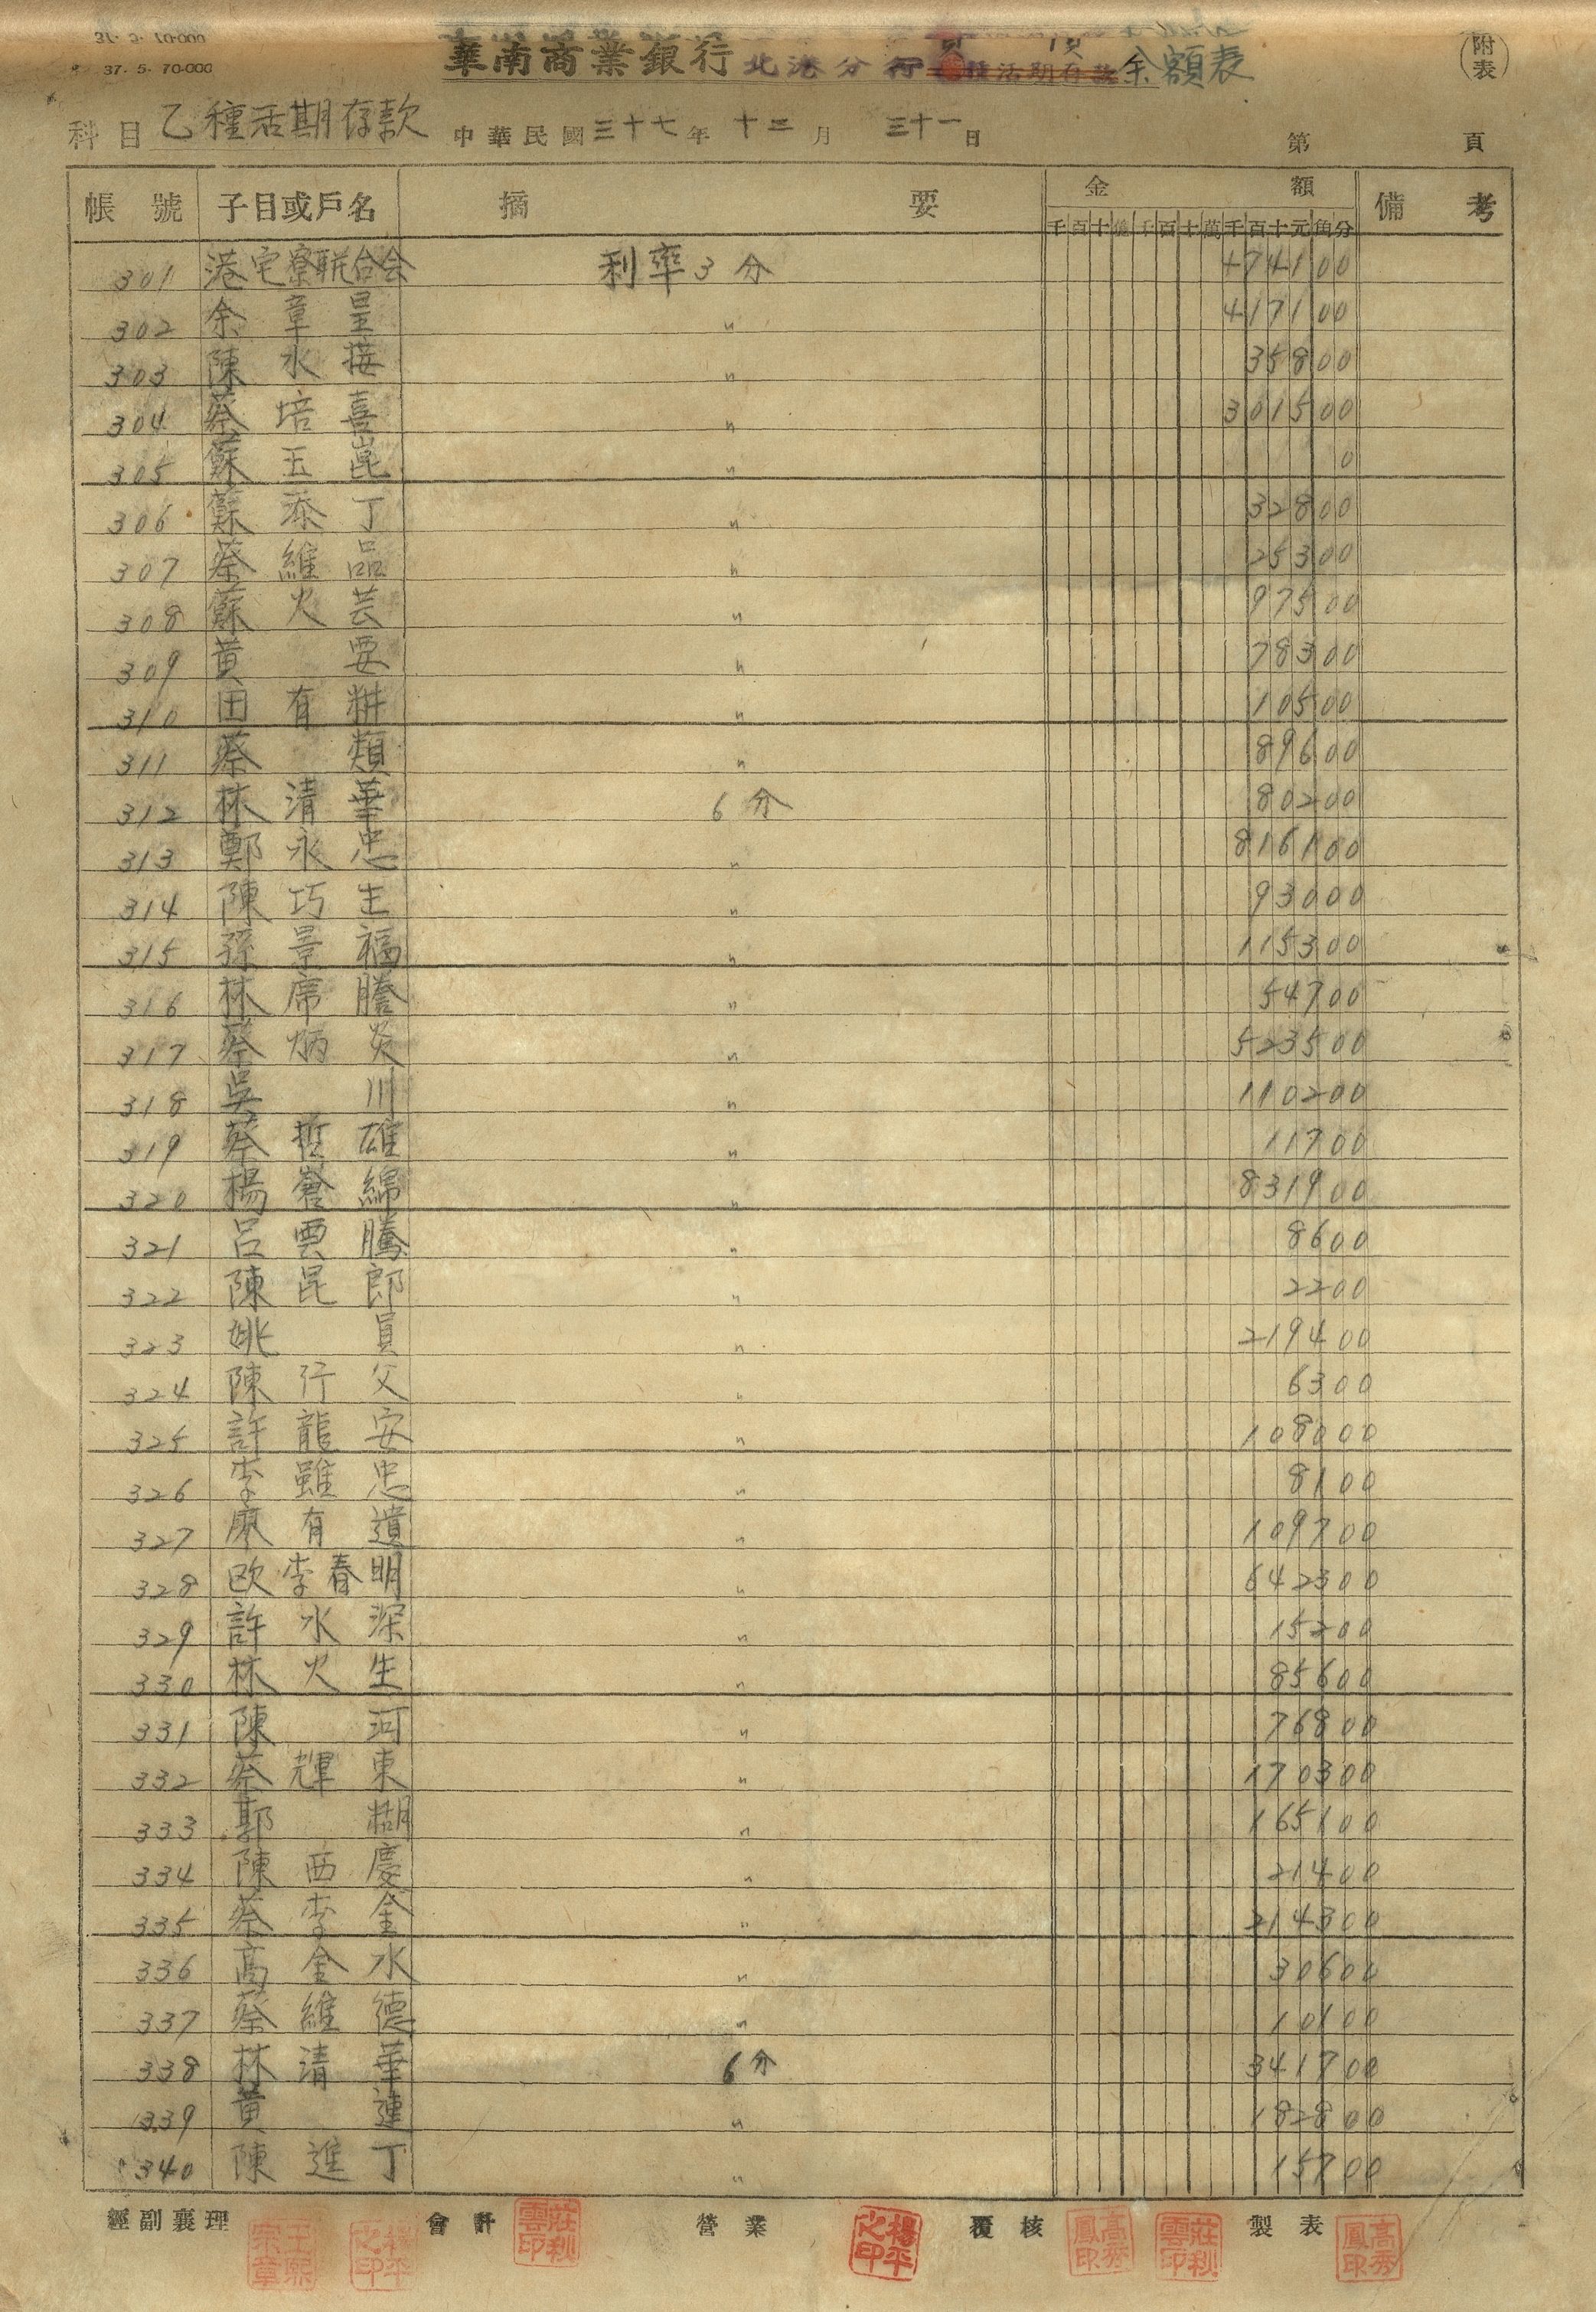 37. 5. 70.000
華南商業銀行 北港分行 余額表
附表
科目 乙種活期存款 中華民國三十七年 十二月 三十一日 第 頁
帳號 子目或戶名 摘要 金額 備考
千百十億千百十萬千百十元角分
301 港宅寮聯合会 利率3分 474100
302 余章呈 〃 417100
303 陳水接 〃 35800
304 蔡培喜 〃 301500
305 蘇玉崑 〃 0
306 蘇添丁 〃 32800
307 蔡維品 〃 25300
308 蘇火芸 〃 97500
309 黃要 〃 78300
310 田有耕 〃 10500
311 蔡類 〃 89600
312 林清華 6分 80200
313 鄭永忠 〃 816100
314 陳巧生 〃 93000
315 孫景福 〃 115300
316 林席謄 〃 54700
317 蔡炳炎 〃 523500
318 吳川 〃 110200
319 蔡哲雄 〃 11700
320 楊蒼綿 〃 831900
321 呂雲騰 〃 8600
322 陳昆郎 〃 2200
323 姚員 〃 219400
324 陳行父 〃 6300
325 許龍安 〃 108000
326 李雖忠 〃 8100
327 廖有遺 〃 109700
328 欧李春明 〃 642300
329 許水深 〃 15200
330 林火生 〃 85600
331 陳河 〃 76800
332 蔡輝東 〃 170300
333 郭糊 〃 165100
334 陳西慶 〃 21400
335 蔡李金 〃 214300
336 高金水 〃 30600
337 蔡維德 〃 10100
338 林清華 6分 341700
339 黃連 〃 182800
340 陳進丁 〃 15700
經副襄理 會計 營業 覆核 製表
王熙宗章 楊平之印 莊秋雲印 楊平之印 高秀鳳印 莊秋雲印 高秀鳳印